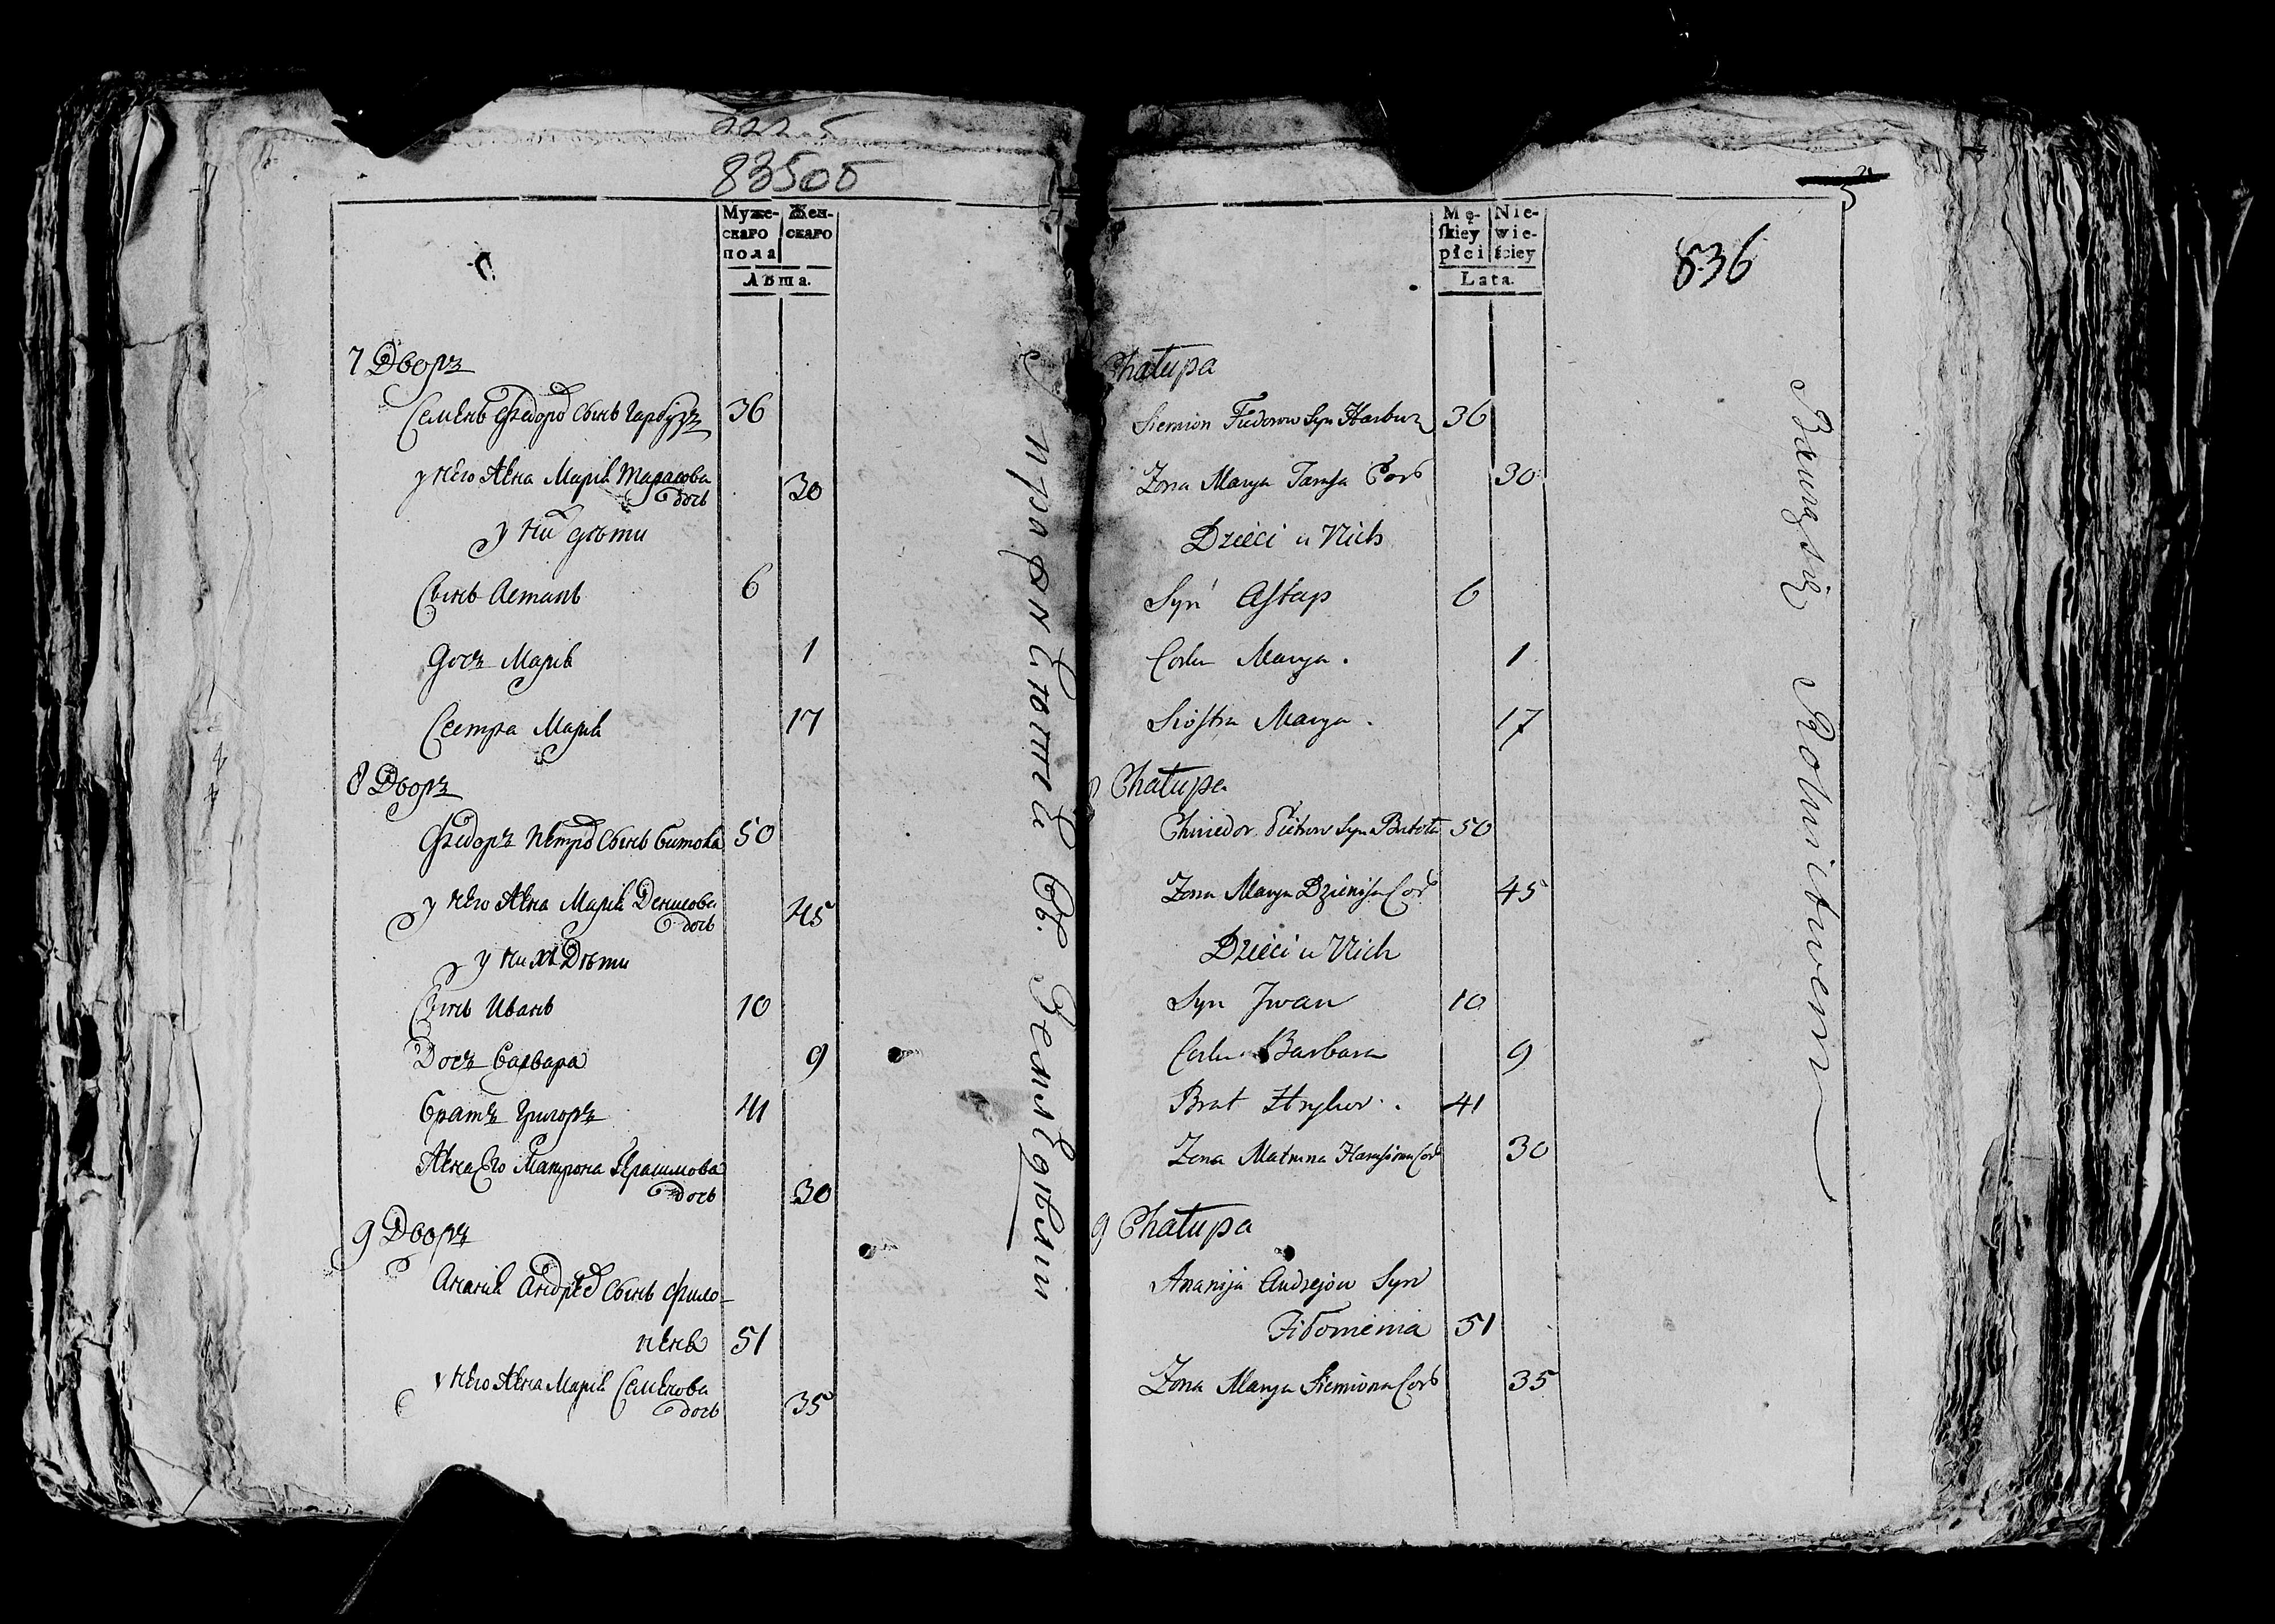 83505
Муже- Жен-
скаго скаго
пола
Лѣта.
7 Дворъ
Семенъ Федоров Сынъ Гарбузъ 36
у него жена Марія Тарасова
дочь 30
у них дѣти
Сынъ Астапъ 6
дочъ Марія 1
Сестра Марія 17
8 Дворъ
Федоръ Петров Сынъ Битова 50
у него жена Марія Денисова
дочь 45
у них Дѣти
Сынъ Иванъ 10
Дочъ Варвара 9
Братъ Григоръ 41
Жена Его Матрона Герасимова
дочь 30
9 Дворъ
Ананія Андреев Сынъ Фило-
неня 51
у него жена Марія Семенова
дочь 35
Упражняются въ Земледѣліи
836
Mę- Nie-
ſkiey wie-
płci ściey
Lata.
Chałupa
Siemion Fiedorow Syn Harbuz 36
Zona Marya Tarasa Cor 30
Dzieci u Nich
Syn Aſtap 6
Corka Marya. 1
Sioſtra Marya. 17
8 Chałupa
Chwiedor Pietrow Syn Bitota 50
Zona Marya Dzienisa Cor 45
Dzieci u Nich
Syn Jwan 10
Corka Barbara 9
Brat Hryhor. 41
Zona Matruna Harasimа Cor 30
9 Chałupa
Ananija Andrejow Syn
Fiłonienia 51
Zona Marya Siemiona Cor 35
Bawią się Rolnictwem